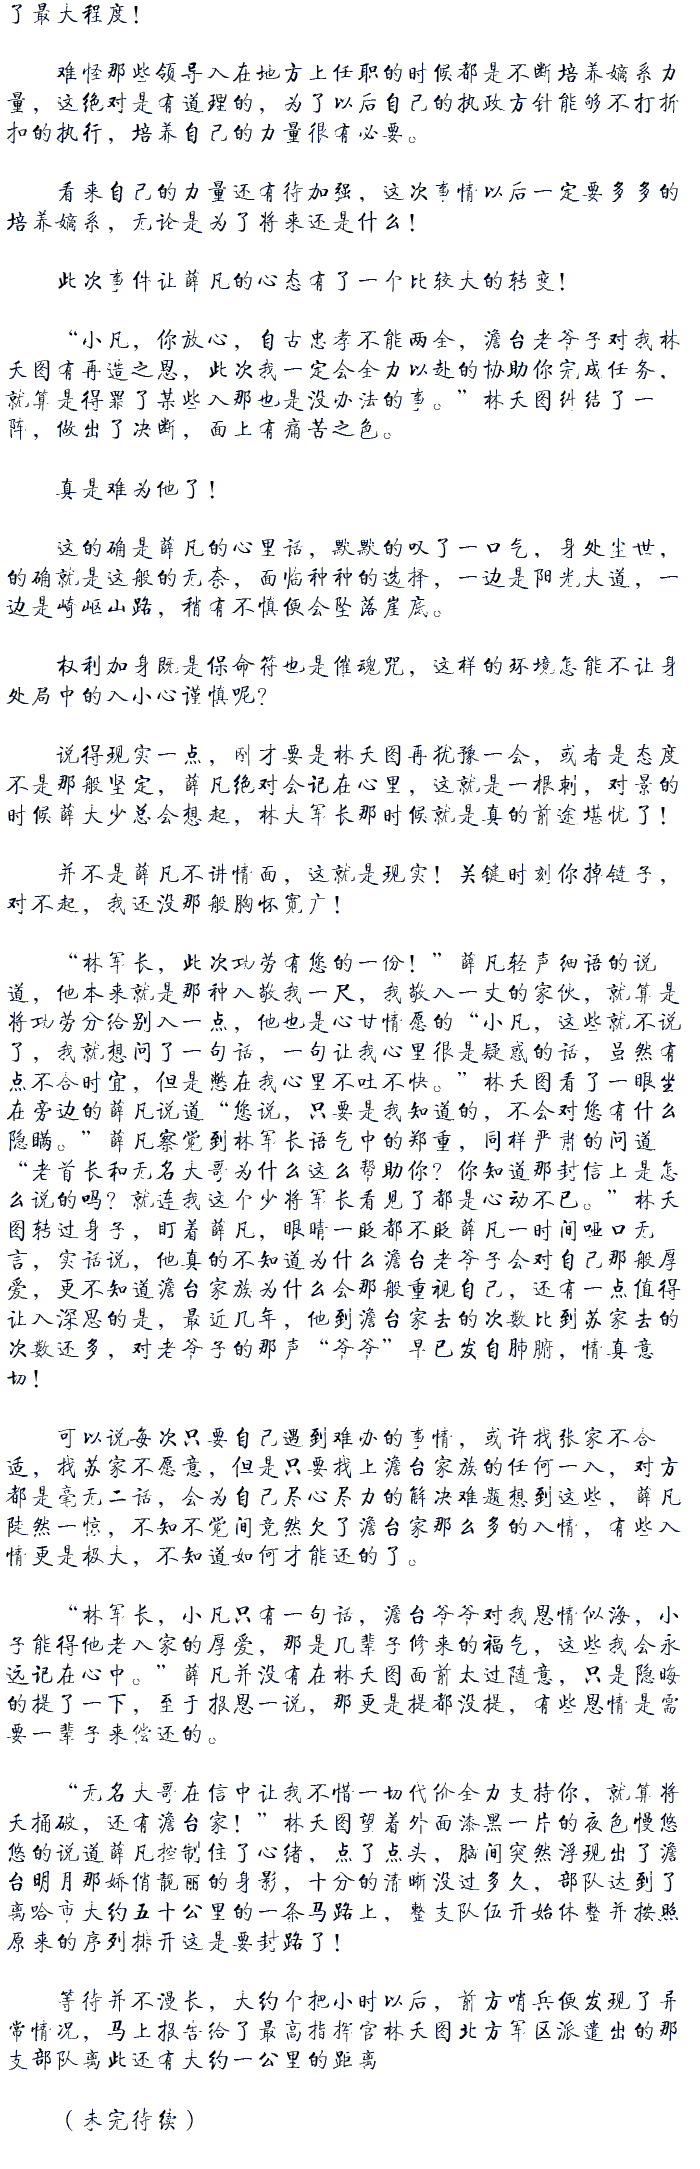 了最大程度！
难怪那些领导人在地方上任职的时候都是不断培养嫡系力
量，这绝对是有道理的，为了以后自己的执政方针能够不打折
扣的执行，培养自己的力量很有必要。
看来自己的力量还有待加强，这次事情以后一定要多多的
培养嫡系，无论是为了将来还是什么！
此次事件让薛凡的心态有了一个比较大的转变！
“小凡，你放心，自古忠孝不能两全，澹台老爷子对我林
天图有再造之恩，此次我一定会全力以赴的协助你完成任务，
就算是得罪了某些人那也是没办法的事。”林天图纠结了一
阵，做出了决断，面上有痛苦之色。
真是难为他了！
这的确是薛凡的心里话，默默的叹了一口气，身处尘世，
的确就是这般的无奈，面临种种的选择，一边是阳光大道，一
边是崎岖山路，稍有不慎便会坠落崖底。
权利加身既是保命符也是催魂咒，这样的环境怎能不让身
处局中的人小心谨慎呢？
说得现实一点，刚才要是林天图再犹豫一会，或者是态度
不是那般坚定，薛凡绝对会记在心里，这就是一根刺，对景的
时候薛大少总会想起，林大军长那时候就是真的前途堪忧了！
并不是薛凡不讲情面，这就是现实！关键时刻你掉链子，
对不起，我还没那般胸怀宽广！
“林军长，此次功劳有您的一份！”薛凡轻声细语的说
道，他本来就是那种人敬我一尺，我敬人一丈的家伙，就算是
将功劳分给别人一点，他也是心甘情愿的“小凡，这些就不说
了，我就想问了一句话，一句让我心里很是疑惑的话，虽然有
点不合时宜，但是憋在我心里不吐不快。”林天图看了一眼坐
在旁边的薛凡说道“您说，只要是我知道的，不会对您有什么
隐瞒。”薛凡察觉到林军长语气中的郑重，同样严肃的问道
“老首长和无名大哥为什么这么帮助你？你知道那封信上是怎
么说的吗？就连我这个少将军长看见了都是心动不已。”林天
图转过身子，盯着薛凡，眼睛一眨都不眨薛凡一时间哑口无
言，实话说，他真的不知道为什么澹台老爷子会对自己那般厚
爱，更不知道澹台家族为什么会那般重视自己，还有一点值得
让人深思的是，最近几年，他到澹台家去的次数比到苏家去的
次数还多，对老爷子的那声“爷爷”早已发自肺腑，情真意
切！
可以说每次只要自己遇到难办的事情，或许找张家不合
适，找苏家不愿意，但是只要找上澹台家族的任何一人，对方
都是毫无二话，会为自己尽心尽力的解决难题想到这些，薛凡
陡然一惊，不知不觉间竟然欠了澹台家那么多的人情，有些人
情更是极大，不知道如何才能还的了。
“林军长，小凡只有一句话，澹台爷爷对我恩情似海，小
子能得他老人家的厚爱，那是几辈子修来的福气，这些我会永
远记在心中。”薛凡并没有在林天图面前太过随意，只是隐晦
的提了一下，至于报恩一说，那更是提都没提，有些恩情是需
要一辈子来偿还的。
“无名大哥在信中让我不惜一切代价全力支持你，就算将
天捅破，还有澹台家！”林天图望着外面漆黑一片的夜色慢悠
悠的说道薛凡控制住了心绪，点了点头，脑间突然浮现出了澹
台明月那娇俏靓丽的身影，十分的清晰没过多久，部队达到了
离哈市大约五十公里的一条马路上，整支队伍开始休整并按照
原来的序列排开这是要封路了！
等待并不漫长，大约个把小时以后，前方哨兵便发现了异
常情况，马上报告给了最高指挥官林天图北方军区派遣出的那
支部队离此还有大约一公里的距离
（未完待续）